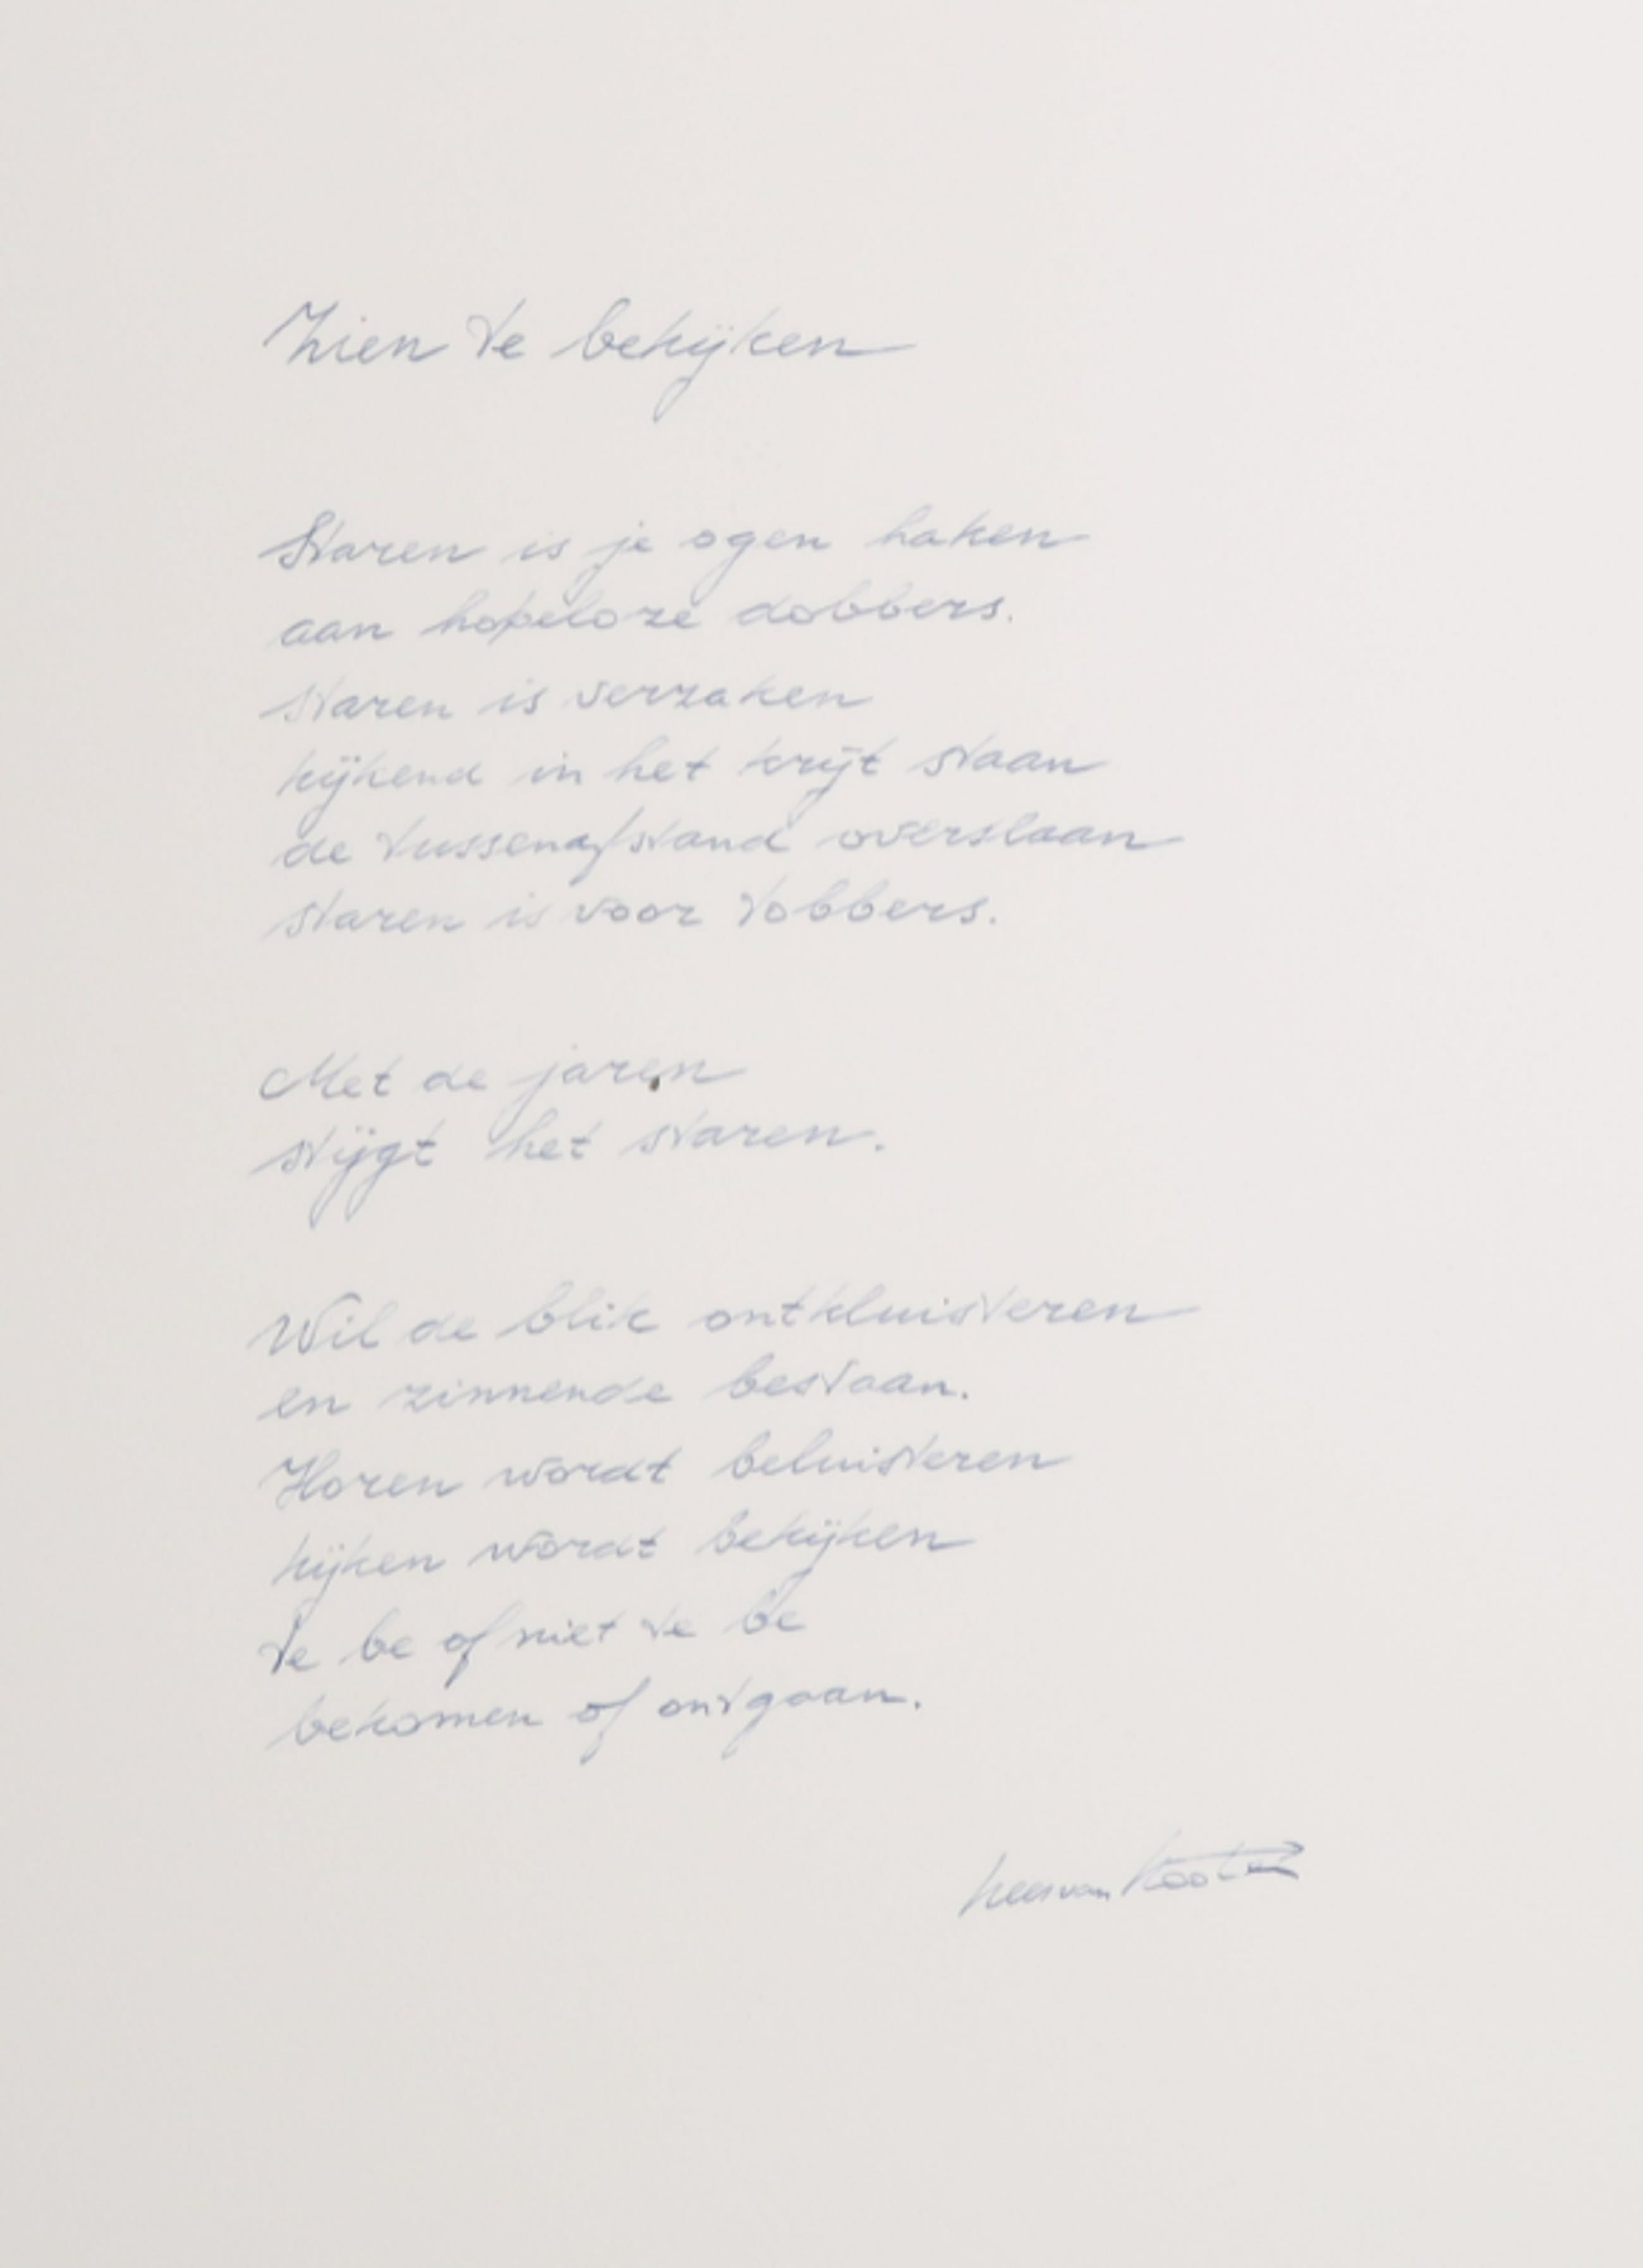 Zien te bekijken
Staren is je ogen haken
aan hopeloze dobbers.
staren is verzaken
kijkend in het krijt staan
de tussenafstand overslaan
staren is voor tobbers.
Met de jaren
stijgt het staren.
Wil de blik ontkluisteren
en zinnende bestaan.
Horen wordt beluisteren
kijken wordt bekijken
te be of niet te be
bekomen of ontgaan.
Kees van Kooten